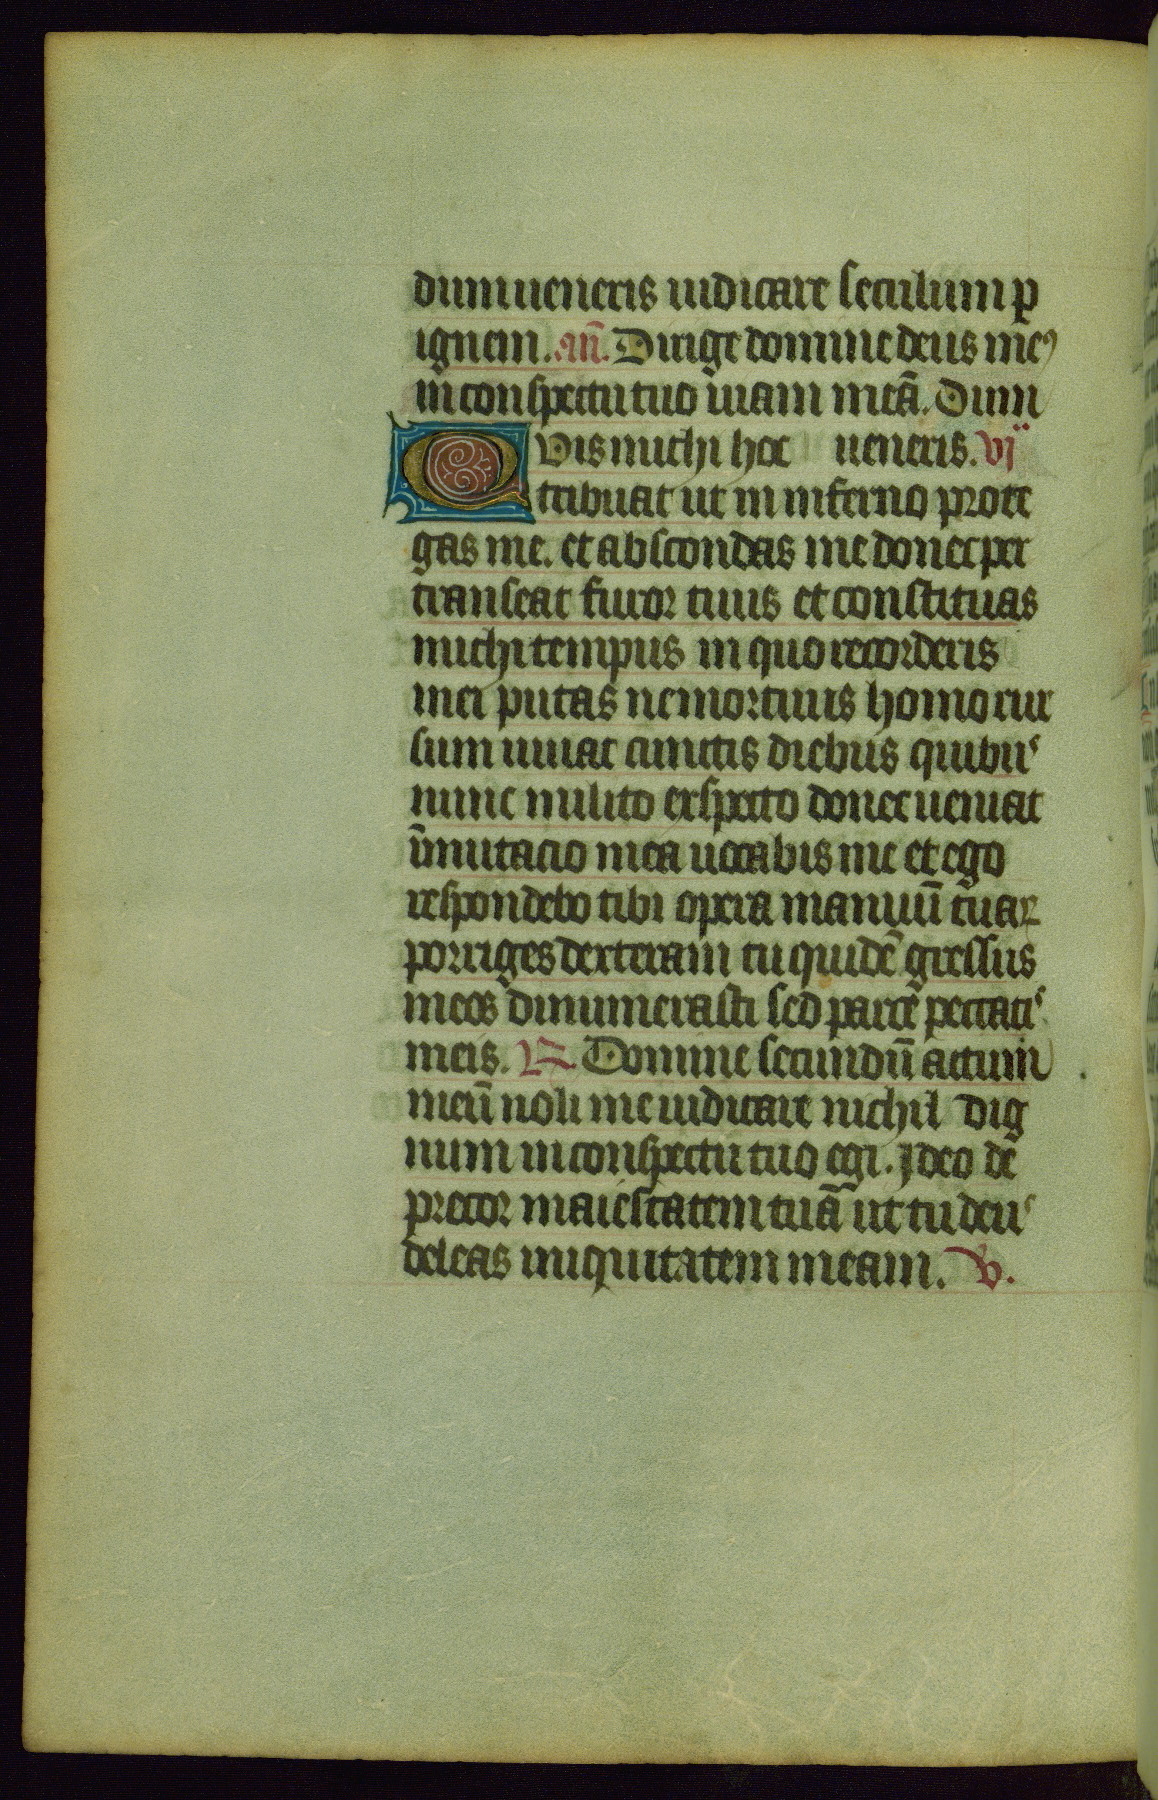 dum ueneris iudicare seculum ꝑ
ignem. an̄. Dirige domine deus meꝰ
in conspectu tuo uiam meā. Dum
Qvis michi hoc ueneris. vi
tribuat ut in inferno prote
gas me. et abscondas me donec per
transeat furor tuus et constituas
michi tempus in quo recorderis
mei putas ne mortuus homo rur
sum uiuat cunctis diebus quibus
nunc milito exspecto donec ueniat
ūmutacio mea uocabis me et ego
respondebo tibi opera manuū tuaꝝ
porriges dexteram tu quidē gressus
meos dinumerasti sed parce peccatis
meis. ℟ Domine secundū actum
meū noli me iudicare nichil dig
num in conspectu tuo egi. Jdeo de
precor maiestatem tuā ut tu deus
deleas iniquitatem meam. v.